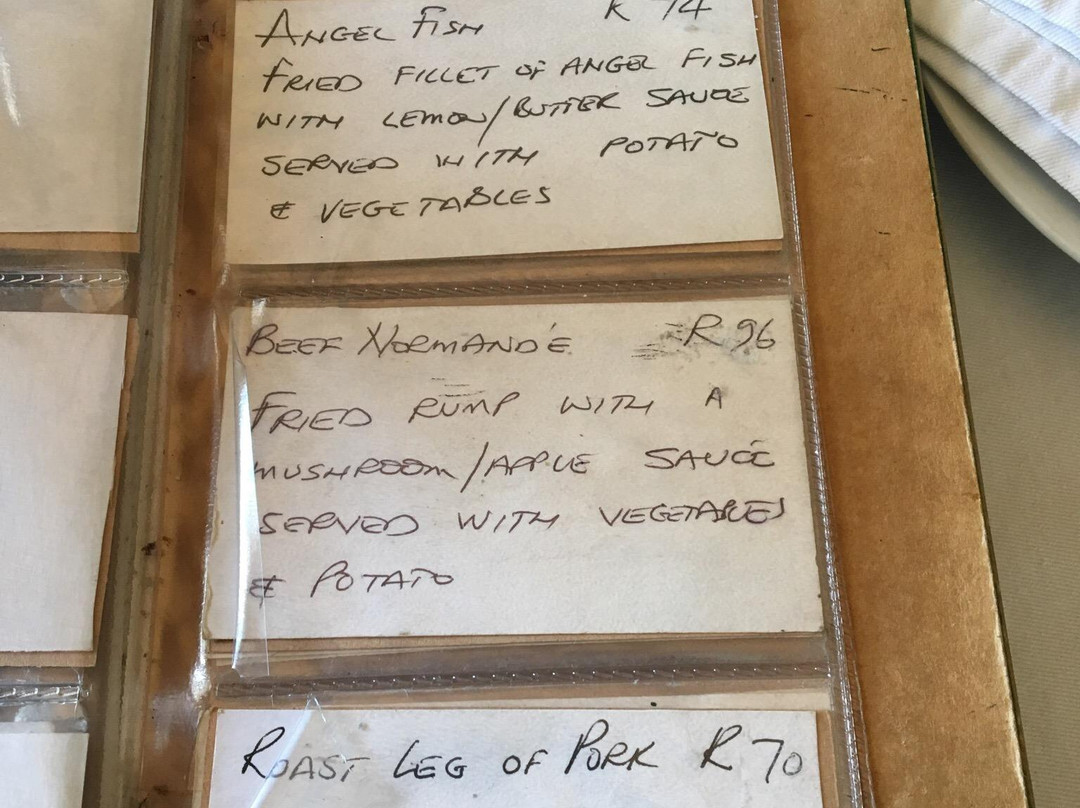 ANGEL FISH R 74
FRIED FILLET OF ANGEL FISH
WITH LEMON/BUTTER SAUCE
SERVED WITH POTATO
& VEGETABLES
BEEF NORMANDÉ R 96
FRIED RUMP WITH A
MUSHROOM/APPLE SAUCE
SERVED WITH VEGETABLES
& POTATO
ROAST LEG OF PORK R 70